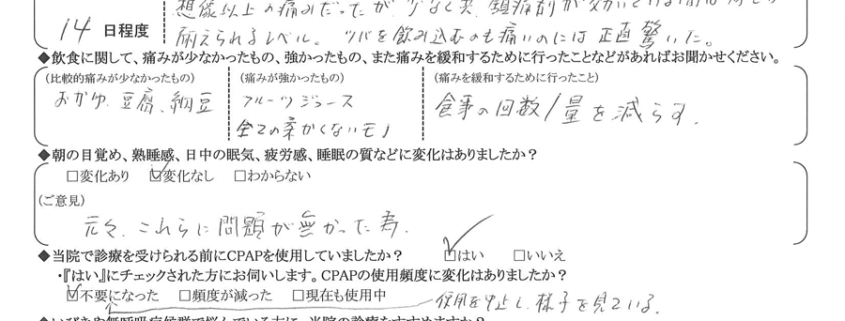 想像以上の痛みだったが、少なく共、鎮痛剤が効いている間は
14 日程度
耐えられるレベル。ツバを飲み込むのも痛いのには正直驚いた。
◆飲食に関して、痛みが少なかったもの、強かったもの、また痛みを緩和するために行ったことなどがあればお聞かせください。
(比較的痛みが少なかったもの) (痛みが強かったもの) (痛みを緩和するために行ったこと)
おかゆ、豆腐、納豆 フルーツジュース 食事の回数/量を減らす.
全ての柔かくないモノ
◆朝の目覚め、熟睡感、日中の眠気、疲労感、睡眠の質などに変化はありましたか?
□変化あり ☑変化なし □わからない
(ご意見)
元々、これらに問題が無かった為.
◆当院で診療を受けられる前にCPAPを使用していましたか? ☑はい □いいえ
・『はい』にチェックされた方にお伺いします。CPAPの使用頻度に変化はありましたか?
☑不要になった □頻度が減った □現在も使用中 使用を中止し、様子を見ている.
◆いびきや無呼吸症候群で悩んでいる方に、当院の診療をすすめますか?